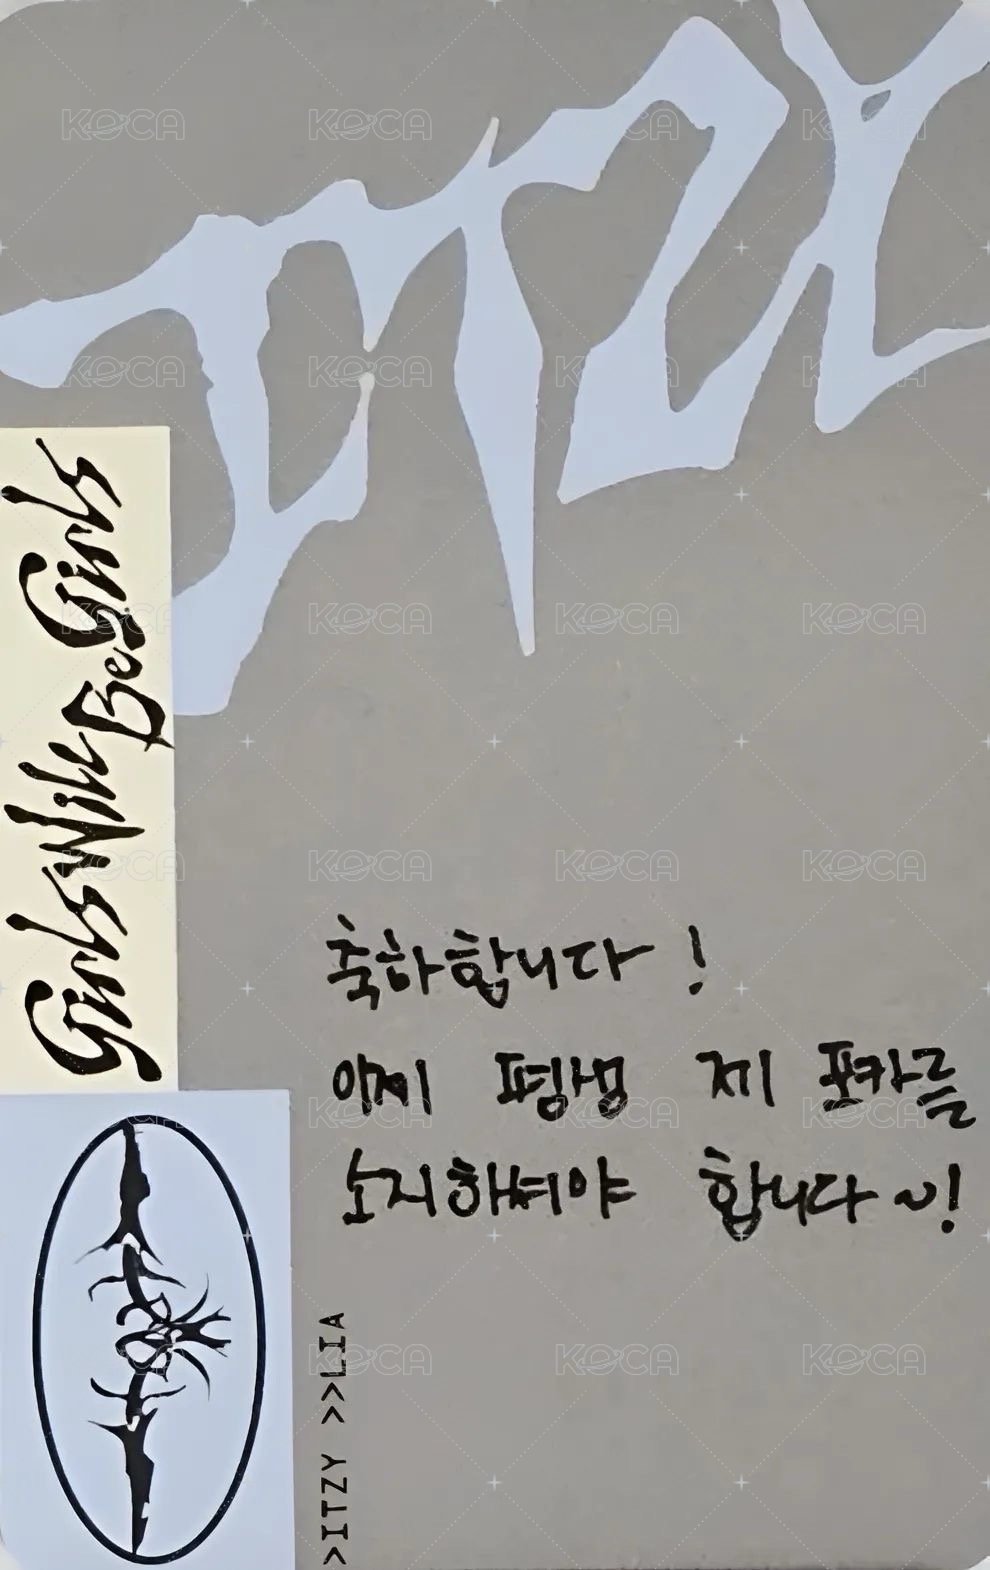 ITZY
Girls Will Be Girls
축하합니다!
이제 평생 제 포카를
소지하셔야 합니다~!
>ITZY >>LIA
KOCA